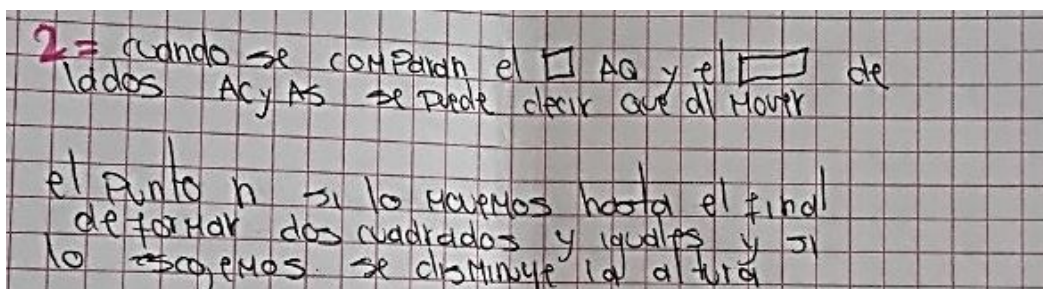 2= cuando se comparan el □ AQ y el ▭ de
lados AC y AS se puede decir que al mover
el punto n si lo movemos hasta el final
de formar dos cuadrados y iguales y si
lo escogemos se disminuye la altura